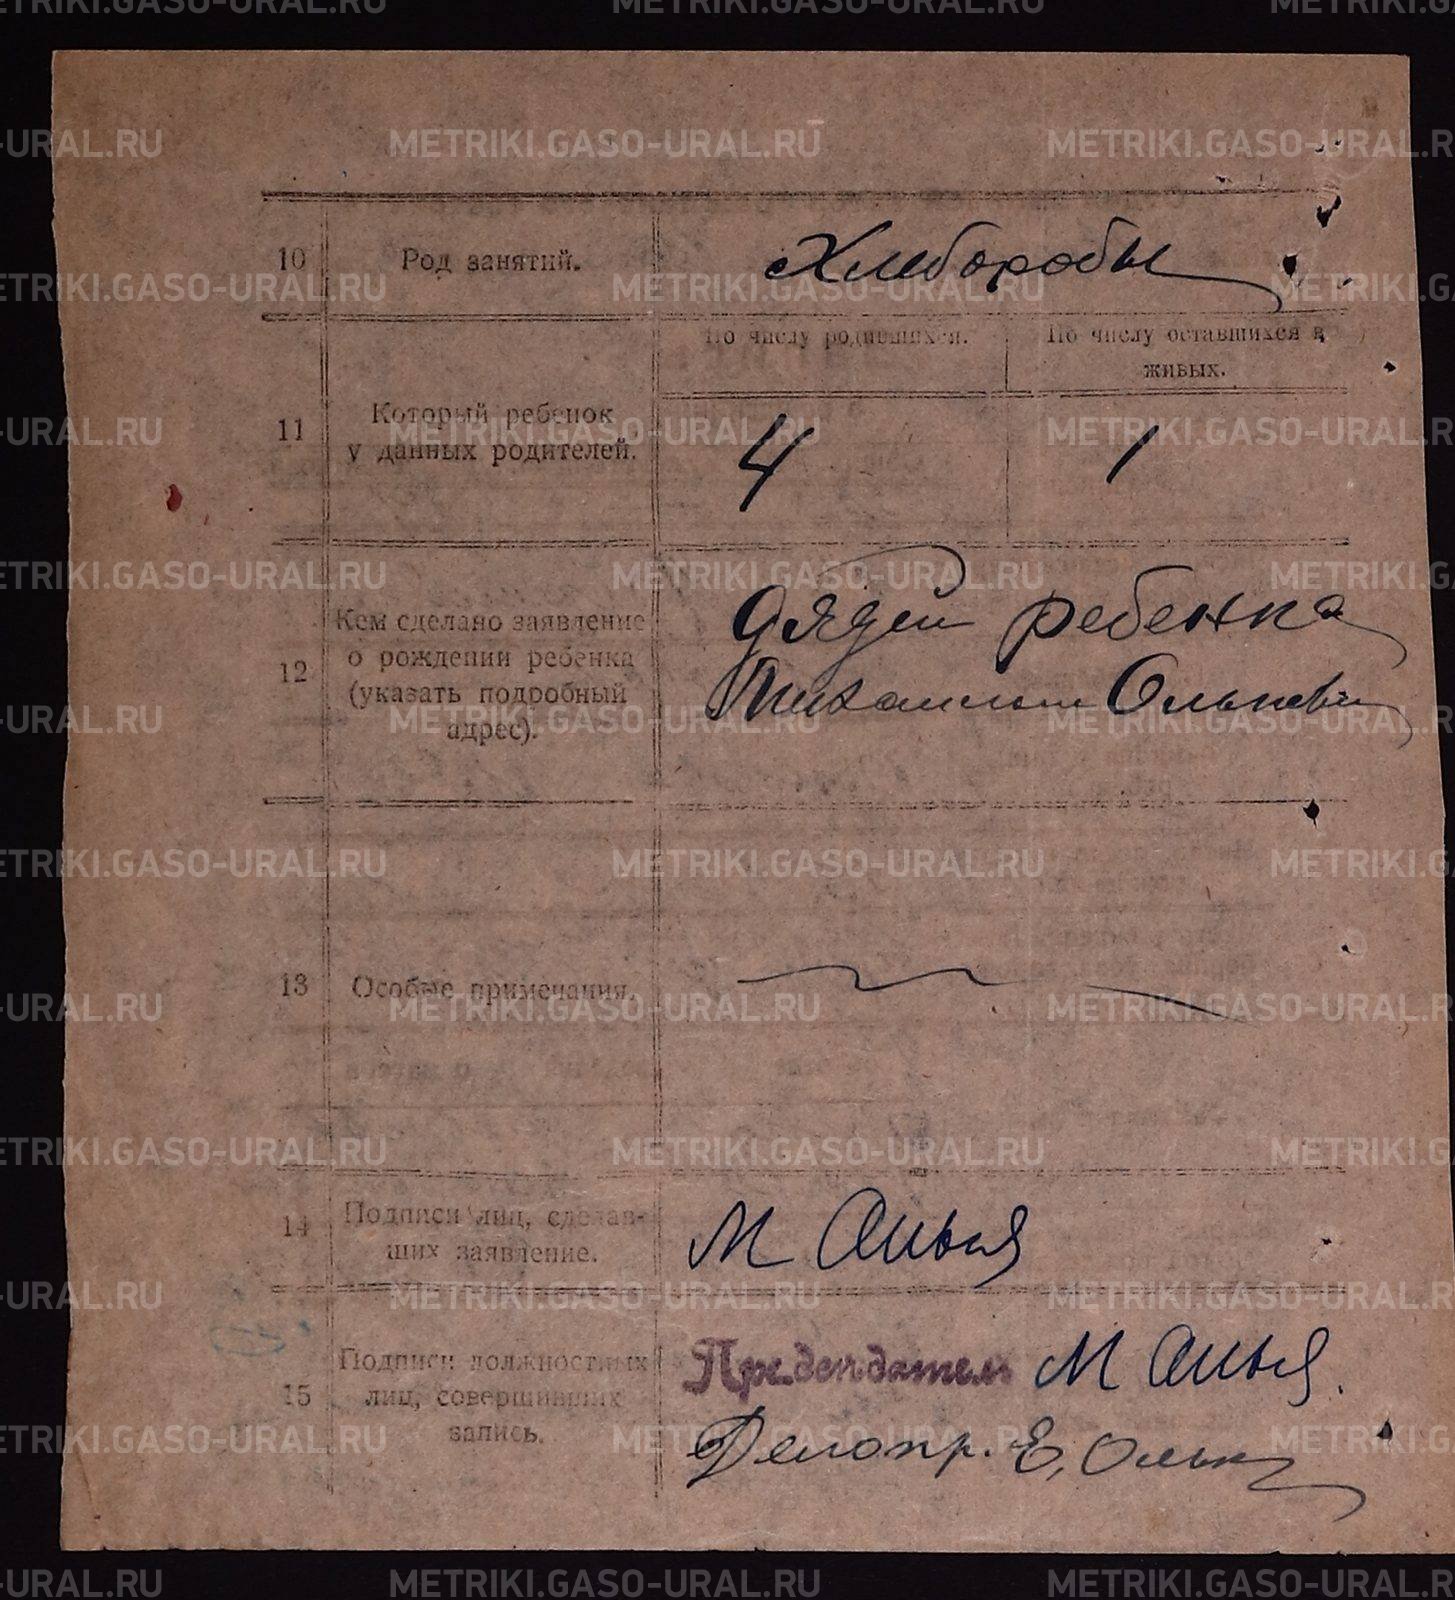 10 Род занятий. Хлеборобы
По числу родившихся. По числу оставшихся в
живых.
11 Который ребенок
у данных родителей. 4 1
12 Кем сделано заявление
о рождении ребенка
(указать подробный
адрес).
дядей ребенка
Михаилом
13 Особые примечания.
14 Подписи лиц, сделав-
ших заявление.
М
15 Подписи должностных
лиц, совершивших
запись.
Председатель М
Делопр. Е.
METRIKI.GASO-URAL.RU